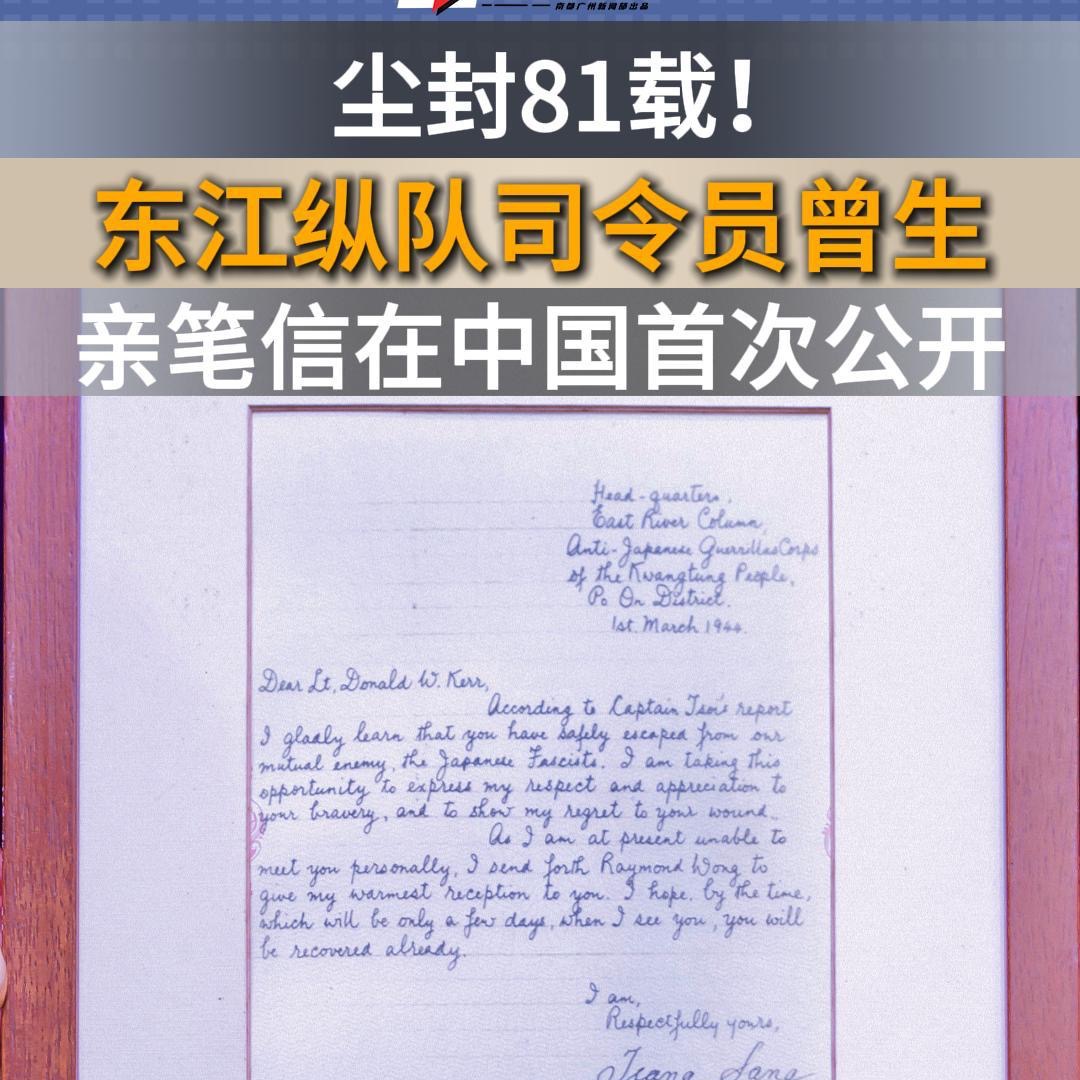 南都广州新闻部出品
尘封81载！
东江纵队司令员曾生
亲笔信在中国首次公开
Head-quarters,
East River Column,
Anti-Japanese Guerrillas Corps
of the Kwangtung People,
Po On District.
1st. March 1944.
Dear Lt. Donald W. Kerr,
According to Captain Tsoi's report
I gladly learn that you have safely escaped from our
mutual enemy, the Japanese Fascists. I am taking this
opportunity to express my respect and appreciation to
your bravery, and to show my regret to your wound.
As I am at present unable to
meet you personally, I send forth Raymond Wong to
give my warmest reception to you. I hope, by the time,
which will be only a few days, when I see you, you will
be recovered already.
I am,
Respectfully yours,
Tsang Sang